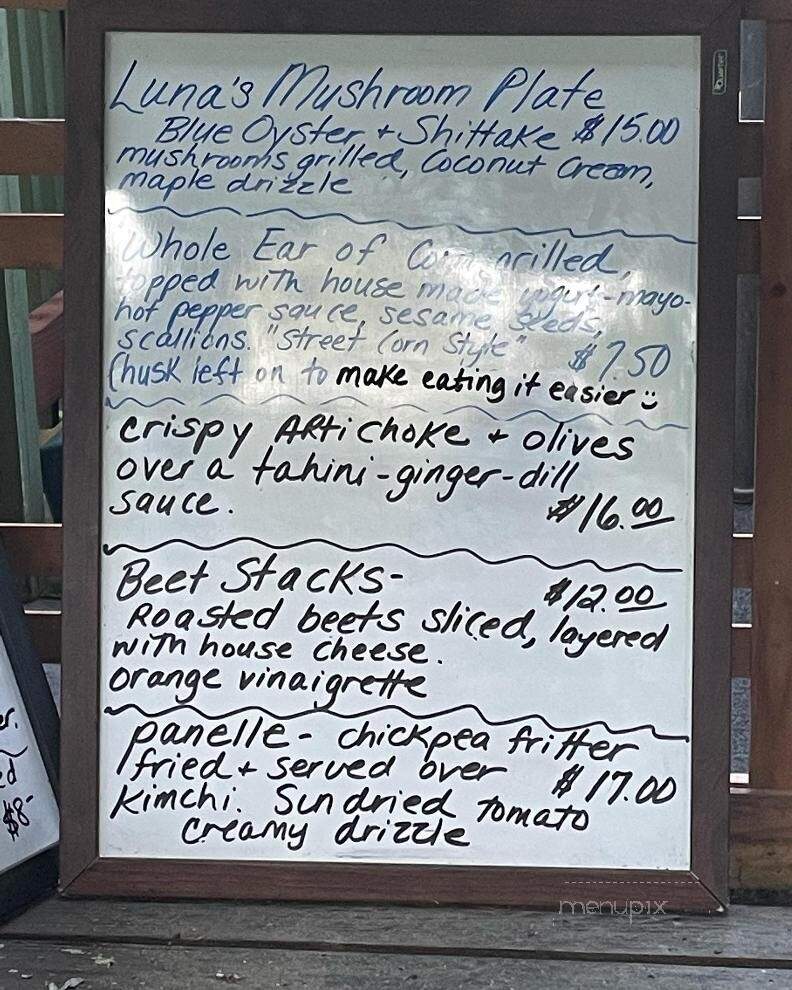 Luna's Mushroom Plate
Blue Oyster + Shittake $15.00
mushrooms grilled, Coconut Cream,
maple drizzle
Whole Ear of Corn grilled,
topped with house made yogurt-mayo-
hot pepper sauce, sesame seeds,
scallions. "Street Corn Style" $7.50
(husk left on to make eating it easier :)
crispy Artichoke + olives
over a tahini-ginger-dill
sauce. $16.00
Beet Stacks- $12.00
Roasted beets sliced, layered
with house cheese.
orange vinaigrette
panelle- chickpea fritter
fried + served over $17.00
Kimchi. Sundried tomato
creamy drizzle
Quartet
er.
ed
$8-
menupix